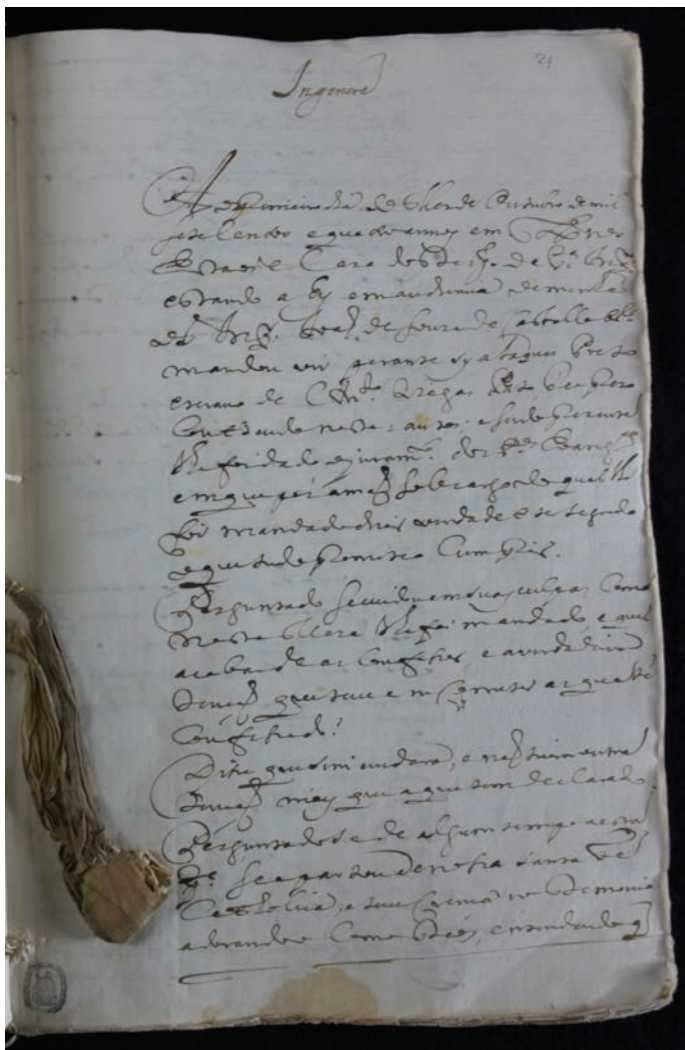 21
In genere
Ao primeiro dia do mes de Outubro de mil
sete centos e quatro annos em Lxª nos
Estaos e Caza do despº da Stª Inqᵃᵐ
estando ahy em audiencia de menhãa
o Sʳ Inqʳ
mandou vir perante sy a Jaques Preto
escravo de Preto
contheudo nestes autos, e sendo presente
lhe foi dado o juramᵗᵒ dos Stᵒˢ Evangᵒˢ
em que pos a mão sob cargo do qual lhe
foi mandado dizer verdade e ter segredo
o que tudo prometeo cumprir.
Perguntado se cuidou em suas culpas como
nesta Meza lhe foi mandado, e quer
acabar de as confessar e a verdadeira
tenção que teve em cometer as que tem
confessado?
Disse que sim cuidara, e não tivera outra
tenção mais que a que tem declarado.
Perguntado se de algum tempo a esta
pᵗᵉ se apartou de nossa santa fé
Catholica, e teve crença no Demonio
adorando-o como Deos, entendendo q̃